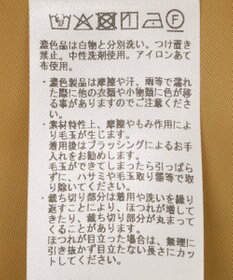 濃色品は白物と分別洗い。つけ置き
禁止。中性洗剤使用。アイロンあて
布使用。
・濃色製品は摩擦や汗、雨等で濡れ
た際に他の衣類や小物類に色が移
る事がありますのでご注意下さ
い。
・素材特性上、摩擦やもみ作用によ
り毛玉が生じます。
着用後はブラッシングによるお手
入れをお勧めします。
毛玉ができてしまったら引っぱら
ずに、ハサミや毛玉取り器等で取
り除いてください。
・裁ち切り部分は着用や洗いを繰り
返すことにより、ほつれが増して
きたり、裁ち切り部分が丸まって
くることがあります。
ほつれが目立った場合は、無理に
引き抜かず目立たない長さにカッ
トしてください。